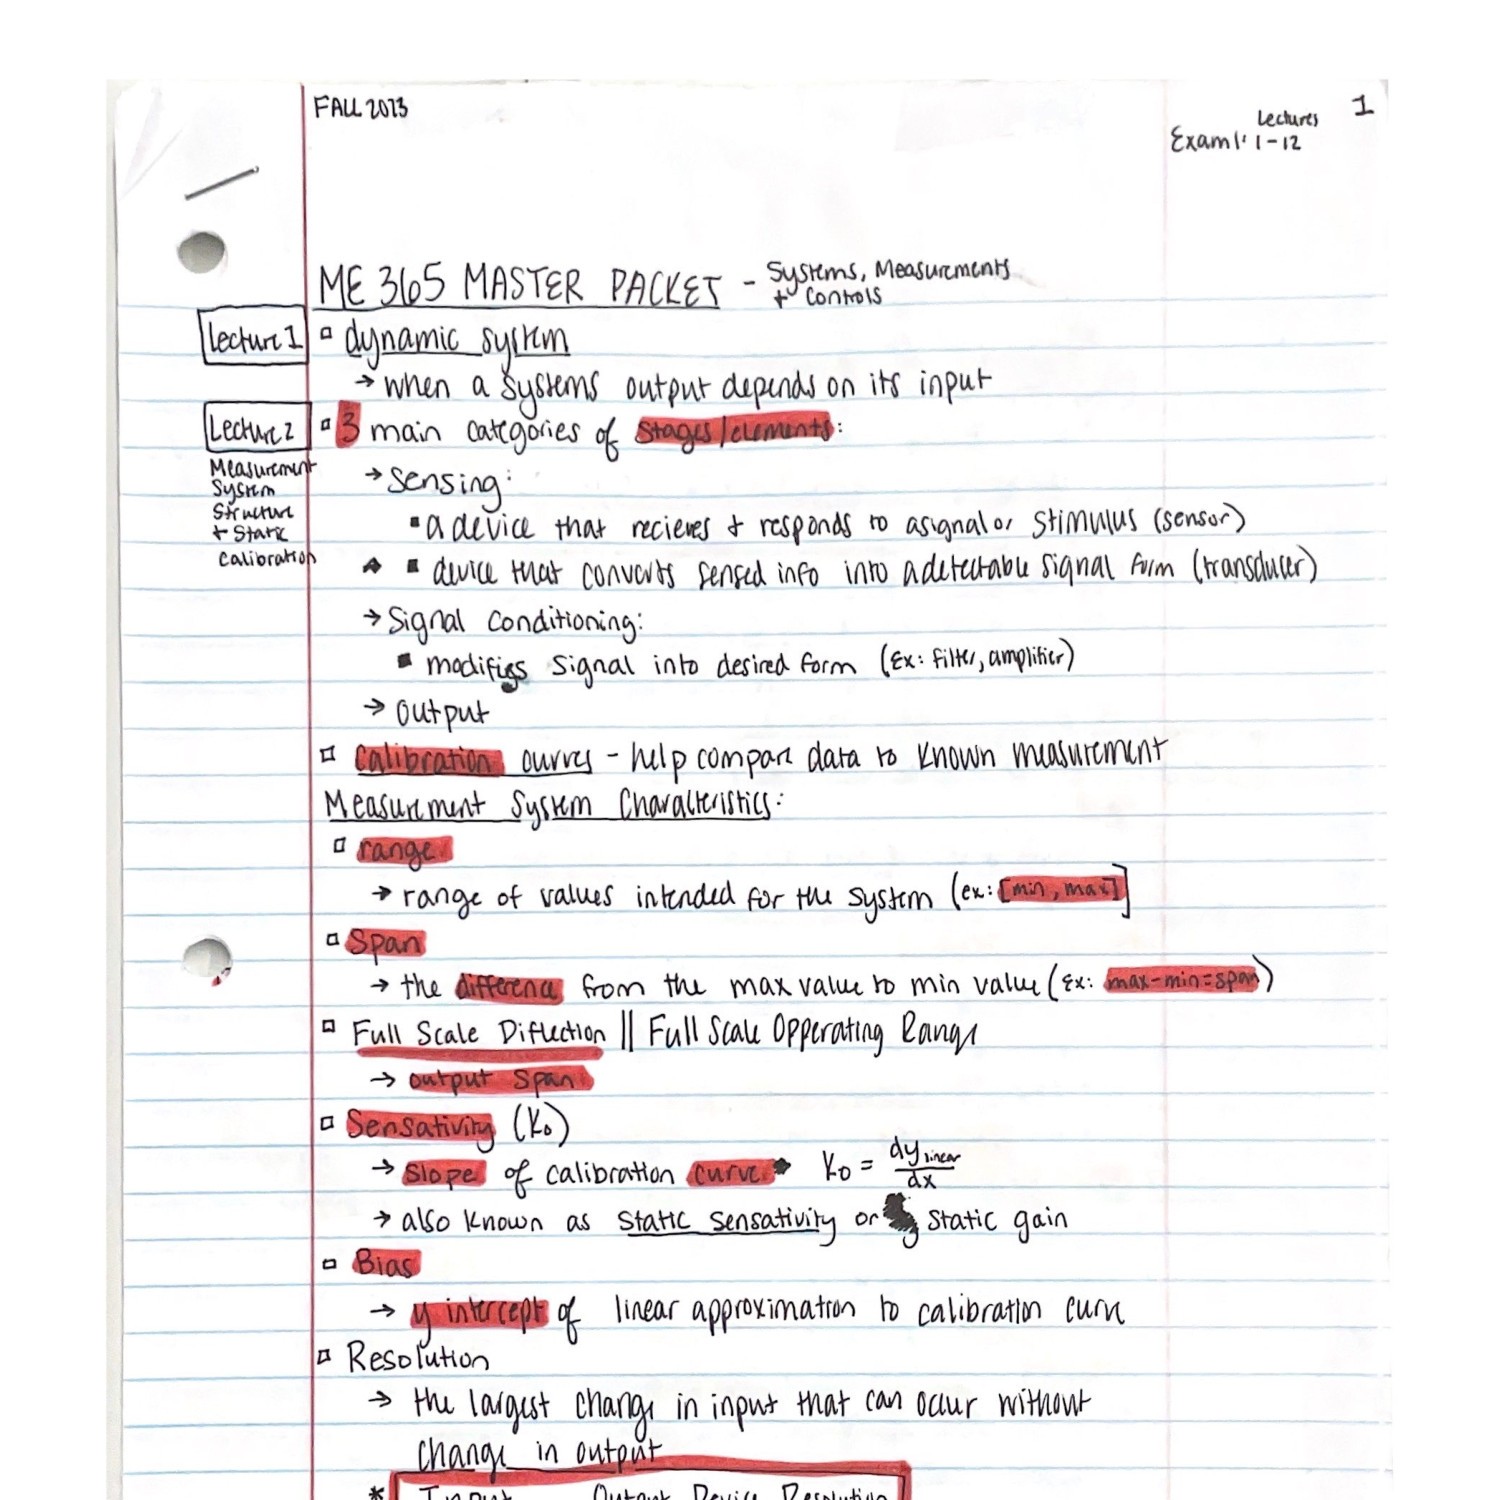 FALL 2023
1
Lectures
Exam 1: 1-12
ME 365 MASTER PACKET - Systems, Measurements
+ Controls
Lecture 1
▫ dynamic system
→ when a systems output depends on its input
Lecture 2
▫ 3 main categories of stages/elements:
Measurement
System
Structure
+ Static
Calibration
→ Sensing:
▪ a device that recieves + responds to a signal or stimulus (sensor)
▪ device that converts sensed info into a detectable signal form (transducer)
→ Signal conditioning:
▪ modifies signal into desired form (Ex: filter, amplifier)
→ output
▫ Calibration curves - help compare data to known measurement
Measurement System Characteristics:
▫ range
→ range of values intended for the system (ex: [min, max]]
▫ Span
→ the difference from the max value to min value (Ex: max-min=span)
▫ Full Scale Diflection || Full Scale Opperating Range
→ output span
▫ Sensativity (K₀)
→ slope of calibration curve K₀ = dy linear / dx
→ also known as static sensativity or static gain
▫ Bias
→ y intercept of linear approximation to calibration curve
▫ Resolution
→ the largest change in input that can occur without
change in output
* Input Output Device Resolution